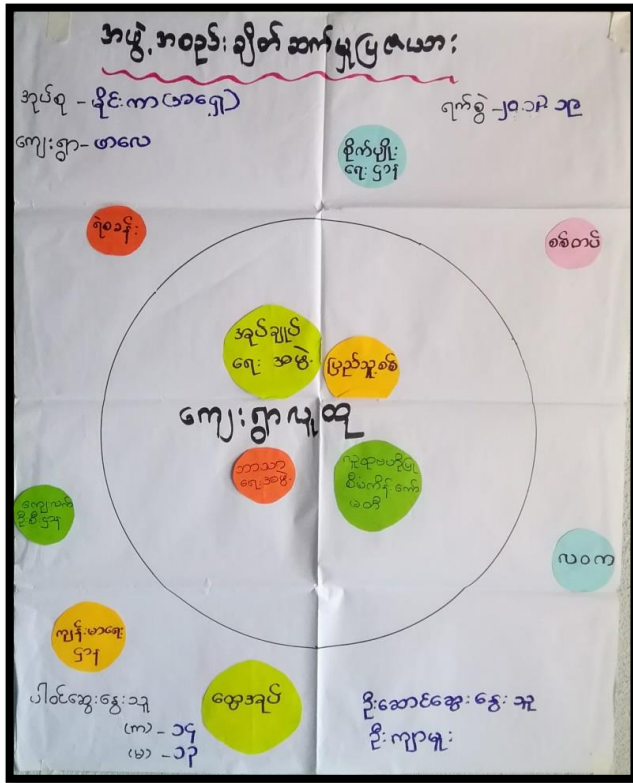 အဖွဲ့အစည်းချိတ်ဆက်မှုပြဇယား
အုပ်စု - နိုင်းကာ(အရှေ့)
ရက်စွဲ -၂၀.၁၂.၁၉
ကျေးရွာ - ဖာလေ
စိုက်ပျိုး
ရေးဌာန
ရဲစခန်း
စစ်တပ်
အုပ်ချုပ်
ရေး အဖွဲ့
ပြည်သူ့စစ်
ကျေးရွာလူထု
ဘာသာ
ရေးအဖွဲ့
လူထုဗဟိုပြု
စီမံကိန်းကော်
မတီ
ကျေးလက်
ဦးစီးဌာန
လဝက
ကျန်းမာရေး
ဌာန
ထွေအုပ်
ပါဝင်ဆွေးနွေးသူ
(ကျ) - ၁၄
(မ) - ၁၃
ဦးဆောင်ဆွေးနွေးသူ
ဦးကျာမူး